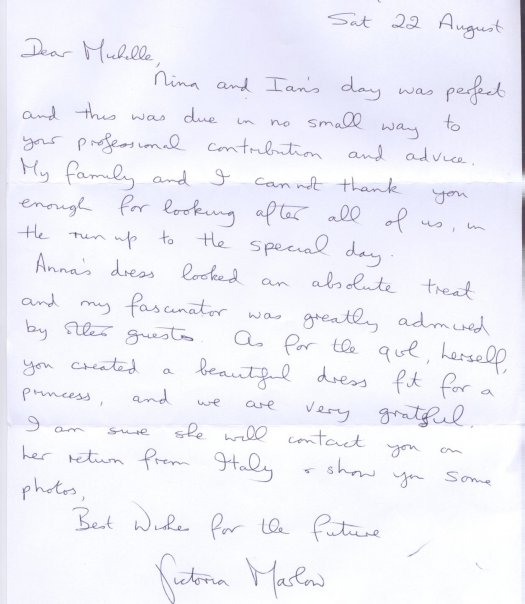 Sat 22 August
Dear Michelle,
Nina and Ian's day was perfect
and this was due in no small way to
your professional contribution and advice.
My family and I cannot thank you
enough for looking after all of us, in
the run up to the special day.
Anna's dress looked an absolute treat
and my fascinator was greatly admired
by other guests. As for the girl, herself,
you created a beautiful dress fit for a
princess, and we are very grateful.
I am sure she will contact you on
her return from Italy & show you some
photos,
Best Wishes for the future
Victoria Marlow